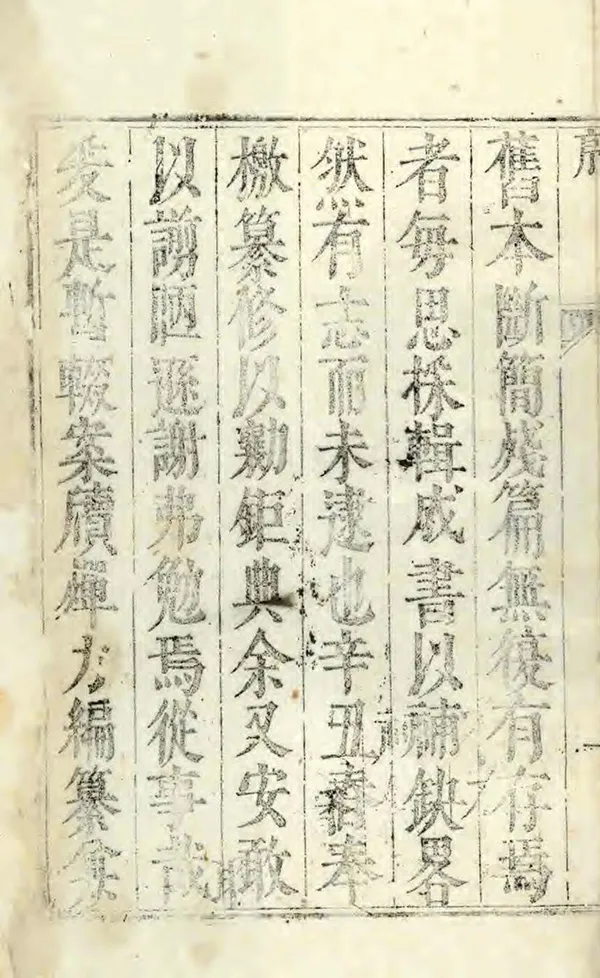 舊本斷簡殘篇無復有存焉
者每思採輯成書以補缺畧
然有志而未逮也辛丑春奉
檄纂修以勷鉅典余又安敢
以謭陋遜謝弗勉焉從事哉
爰是暫輟案牘殫力編纂